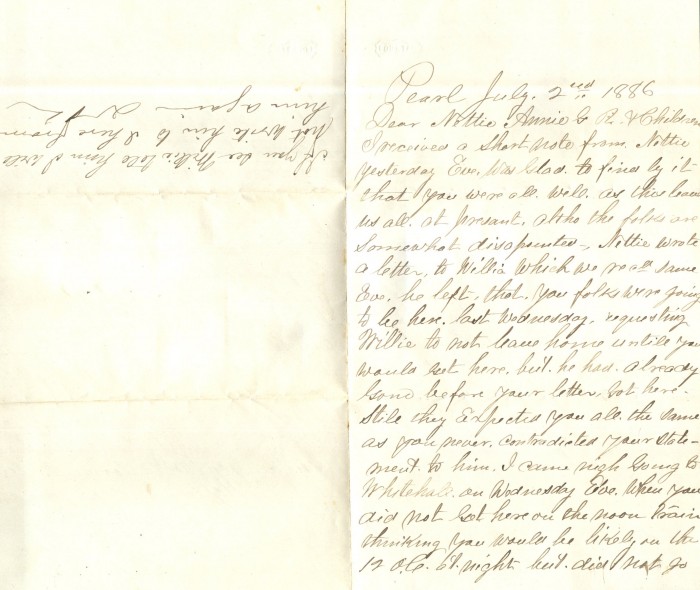 Pearl July. 2nd 1886
Dear Nottie, Annie C. R. & Children
I received a Short note from Nottie
yesterday Eve, Was Glad. to find by it
that you were all. well. as this leaves
us all. at present. altho the folks are
Somewhat disapointed, Nottie wrote
a letter, to Willie Which we recd same
Eve. he left, that. you folks were going
to be here. last Wednesday, requesting
Willie to not leave home untill you
would get here. but. he had. already
Gone before your letter, Got here.
Stile they Expected you all. the same
as you never. contradicted your state-
ment. to him. I came nigh Going to
Whitehall. on Wednesday Eve. When you
did not Got here on the noon Train
thinking you would be likely on the
12 o.C. at. night but. did not go
If you See Willie tell him I will
not write him to there from
him again